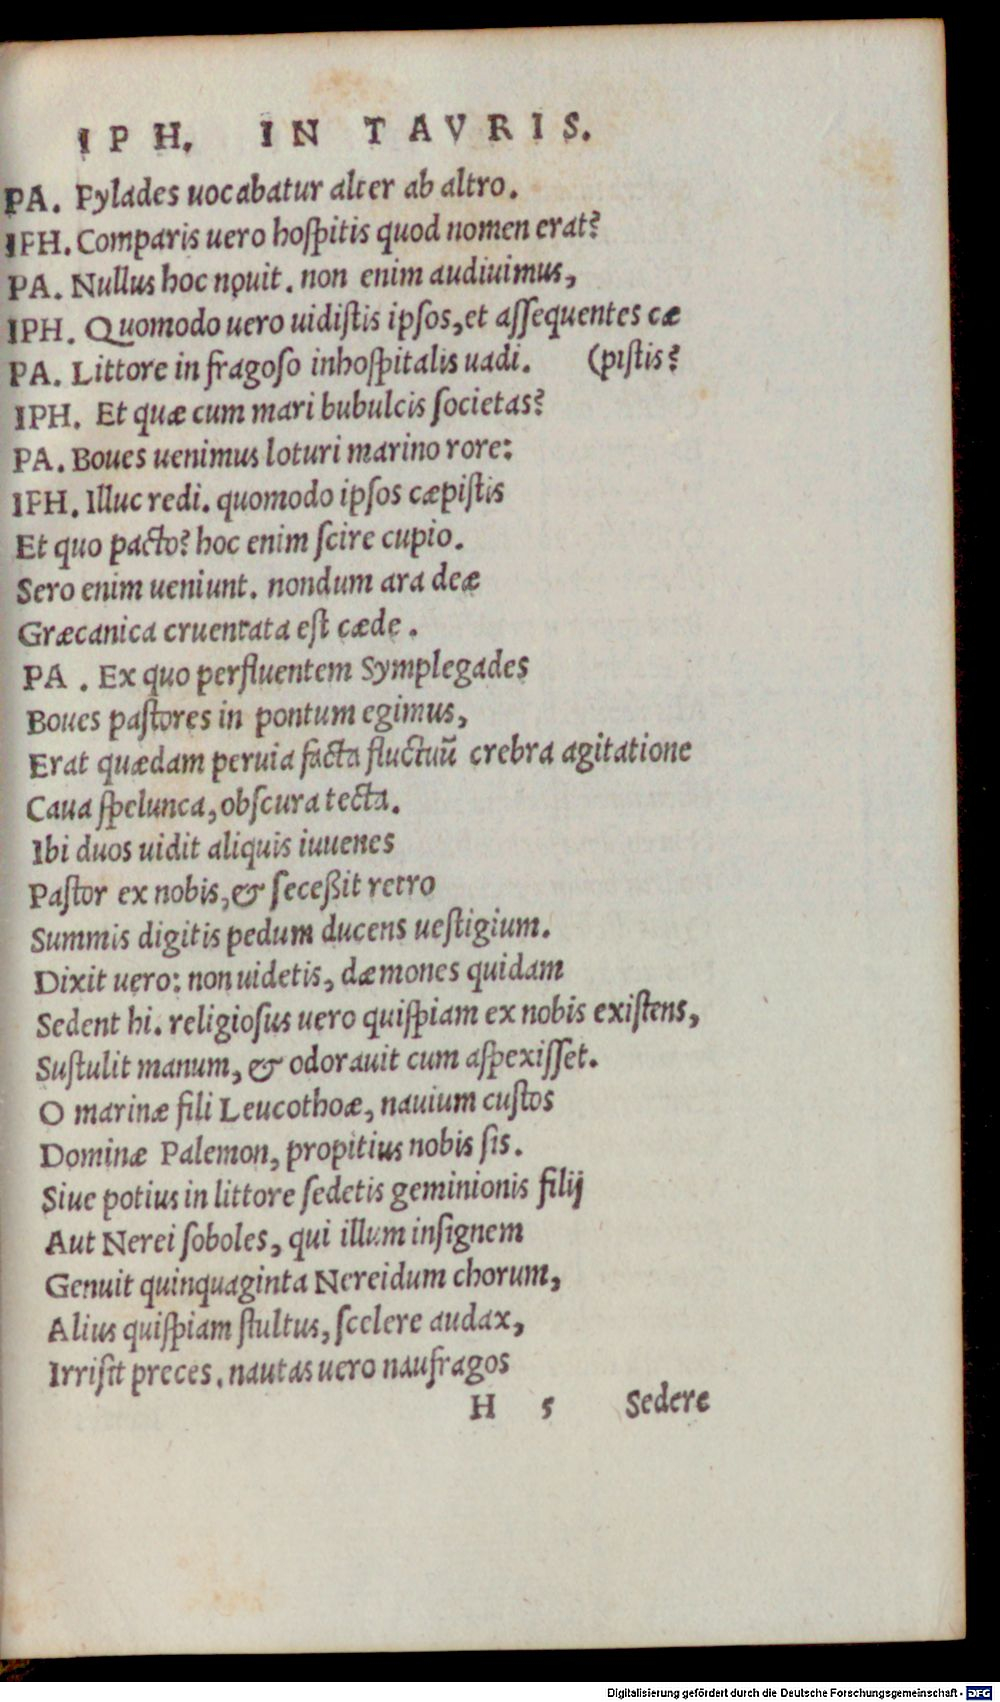 IPH. IN TAVRIS.
PA. Pylades uocabatur alter ab altro.
IPH. Comparis uero hoſpitis quod nomen erat?
PA. Nullus hoc nouit. non enim audiuimus,
IPH. Quomodo uero uidiſtis ipſos, et aſſequentes cæ
PA. Littore in fragoſo inhoſpitalis uadi. (piſtis?
IPH. Et quæ cum mari bubulcis ſocietas?
PA. Boues uenimus loturi marino rore:
IPH. Illuc redi. quomodo ipſos cæpiſtis
Et quo pacto? hoc enim ſcire cupio.
Sero enim ueniunt. nondum ara deæ
Græcanica cruentata eſt cæde.
PA. Ex quo perfluentem Symplegades
Boues paſtores in pontum egimus,
Erat quædam peruia facta fluctuū crebra agitatione
Caua ſpelunca, obſcura tecta.
Ibi duos uidit aliquis iuuenes
Paſtor ex nobis, & ſeceßit retro
Summis digitis pedum ducens ueſtigium.
Dixit uero: non uidetis, dæmones quidam
Sedent hi. religioſus uero quiſpiam ex nobis exiſtens,
Suſtulit manum, & odorauit cum aſpexiſſet.
O marinæ fili Leucothoæ, nauium cuſtos
Dominæ Palemon, propitius nobis ſis.
Siue potius in littore ſedetis geminionis filij
Aut Nerei ſoboles, qui illum inſignem
Genuit quinquaginta Nereidum chorum,
Alius quiſpiam ſtultus, ſcelere audax,
Irriſit preces. nautas uero naufragos
H 5 Sedere
Digitalisierung gefördert durch die Deutsche Forschungsgemeinschaft - DFG